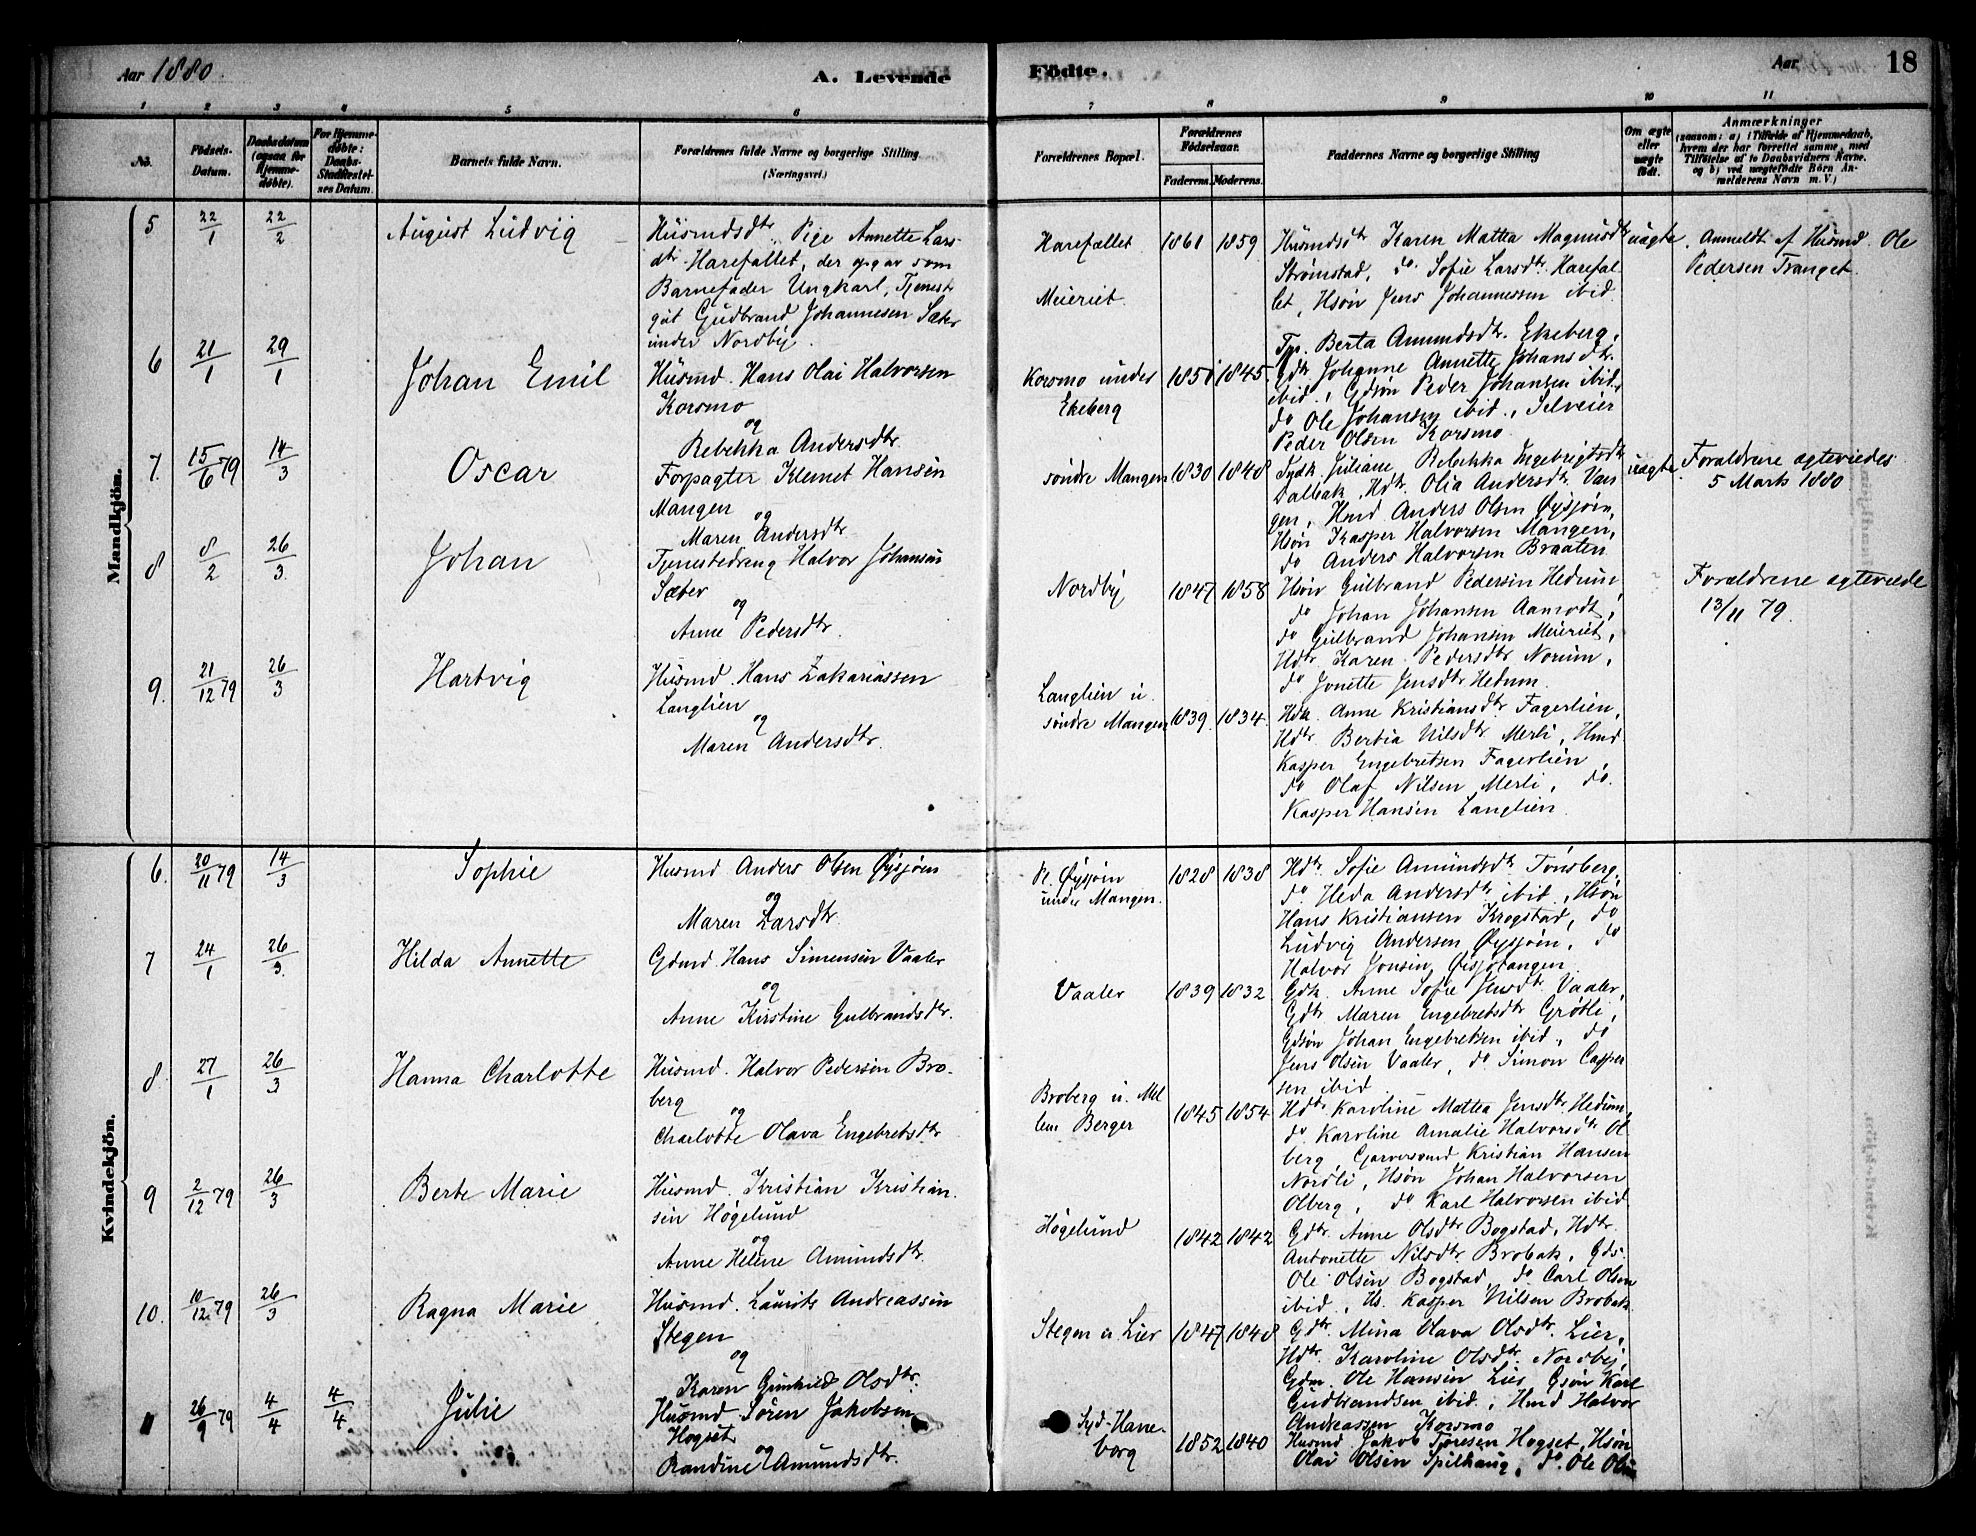 Aar 1880.
A. Levende
Födte.
Aar
18
1 2 3 4 5 6 7 8 9 10 11
No.
Födsels-
Datum.
Daabsdatum
(ogsaa for
Hjemme-
döbte).
For Hjemme-
döbte:
Daabs-
Stadfæstel-
ses Datum.
Barnets fulde Navn.
Forældrenes fulde Navne og borgerlige Stilling
(Næringsvei.)
Forældrenes Bopæl.
Forældrenes
Födselsaar.
Faderens. Moderens.
Faddernes Navne og borgerlige Stilling
Om ægte
eller
uægte
födt.
Anmærkninger
(saasom: a) i Tilfælde af Hjemmedaab,
hvem der har forrettet samme, med
Tilföielse af to Daabsvidners Navne.
og b) ved uægtefödte Börn An-
melderens Navn m. V.)
Mandkjön.
5 22/1 22/2 August Ludvig
Husmdsdtr. Pige Annette Lars-
dtr. Harefallet, der opgav som
Barnefader Ungkarl, Tjenest
gut Gudbrand Johannesen Sæter
under Nordby.
Harefællet
Meieriet.
1861 1859
Husmdsdtr Karen Mathea Magnusdtr
Strømstad, do Sofie Larsdtr. Harefal-
let, Hsøn Jens Johannessen ibid.
uægte
Anmeldt af Husmd. Ole
Pedersen Tranget.
6 21/1 29/1 Johan Emil
Husmd. Hans Olai Halvorsen
Korsmo
og
Rebekka Andersdtr.
Korsmo under
Ekeberg
1851 1845.
Tp. Berta Amundsdtr. Ekeberg,
Gdtr Johanne Annette Johansdtr.
ibid., Gdsøn Peder Johansen ibid.,
do Ole Johansen ibid., Selveier
Peder Olsen Korsmo
7. 15/6 79 14/3 Oscar
Forpagter Klemet Hansen
Mangen
og
Maren Andersdtr
søndre Mangen
1830 1848
Juliane Rebekka Ingebrigtsdtr
Dalbak, Hdtr. Olia Andersdtr Van
gen, Hmd Anders Olsen Øysjøen,
Hsøn Kasper Halvorsen Mangen,
do Anders Halvorsen Braaten
uægte
Forældrene egteviedes
5 Marts 1880
8 8/2 26/3 Johan
Tjenestedreng Halvor Johansen
Sæter
og
Anne Pedersdtr.
Nordby
1847 1858
Hsøn Gulbrand Pedersen Hedum,
do Johan Johansen Aamodt,
do Gulbrand Johansen Meieriet,
Hdtr. Karen Pedersdtr Norum,
do Jonette Jensdtr Hedum.
Forældrene egteviede
13/11 79.
9. 21/12 79 26/3 Hartvig
Husmd. Hans Zakariassen
Langlien
og
Maren Andersdtr.
Langlien u.
søndre Mangen
1839. 1834.
Hdk. Anne Kristiansdtr Fagerlien,
Hdtr. Bertia Nilsdtr Merli, Hmd
Kasper Engebretsen Fagerlien,
do Olaf Nilsen Merli, do.
Kasper Hansen Langlien.
Kvindekjön.
6. 20/11 79 14/3 Sophie
Husmd Anders Olsen Øysjøen
og
Maren Larsdtr.
Pl. Øysjøen
under Mangen.
1828 1838
Hdtr. Sofie Amundsdtr Tønsberg,
do Heda Andersdtr ibid., Hsøn
Hans Kristiansen Krogstad, do
Ludvig Andersen Øysjøen, do
Halvor Jonsen Øisjøtangen.
7 24/1 26/3 Hilda Annette
Gdmd. Hans Simensen Vaaler
og
Anne Kirstine Gulbrandsdtr.
Vaaler
1839 1832
Gdk. Anne Sofie Jensdtr. Vaaler,
Gdtr Maren Engebretsdtr Grøtli,
Gdsøn Johan Engebretsen ibid., do
Jens Olsen Vaaler, do Simon Casper
sen ibid.
8. 27/1 26/3 Hanna Charlotte
Husmd. Halvor Pedersen Bro-
berg
og
Charlotte Olava Engebretsdtr
Broberg u. Mel
lem Berger
1845 1854
Hdtr Karoline Mathea Jensdtr. Hedum,
do Karoline Amalie Halvorsdtr Ol
berg, Garversvend Kristian Hansen
Nordli, Hsøn Johan Halvorsen
Olberg, do Karl Halvorsen ibid
9 2/12 79 26/3 Berte Marie
Husmd. Kristian Kristian-
sen Høgelund
og
Anne Helene Amundsdtr.
Høgelund
1842 1842
Gdtr. Anne Olsdtr Bogstad, Hdtr.
Antonette Nilsdtr Brobak, Gds.
Ole Olsen Bogstad, do Carl Olsen
ibid., Hs. Kasper Nilsen Brobak
10. 10/12 79 26/3 Ragna Marie
Husmd. Laurits Andreassen
Stegen
og
Karen Gunhild Olsdtr.
Stegen u Lier
1847 1848
Gdtr. Mina Olava Olsdtr. Lier,
Hdtr. Karoline Olsdtr. Nordby,
Gdm. Ole Hansen Lier, Gsøn Karl
Gudbrandsen ibid., Hmd Halvor
Andreassen Korsmo
11 26/9 79 4/4 4/4 Julie
Husmd Søren Jakobsen
Hogset
og
Randine Amundsdtr.
Syd-Hane-
borg
1852 1840
Husmd Jakob Toresen Hogset, Hsøn
Olai Olsen Spilhaug, do. Ole Olsen